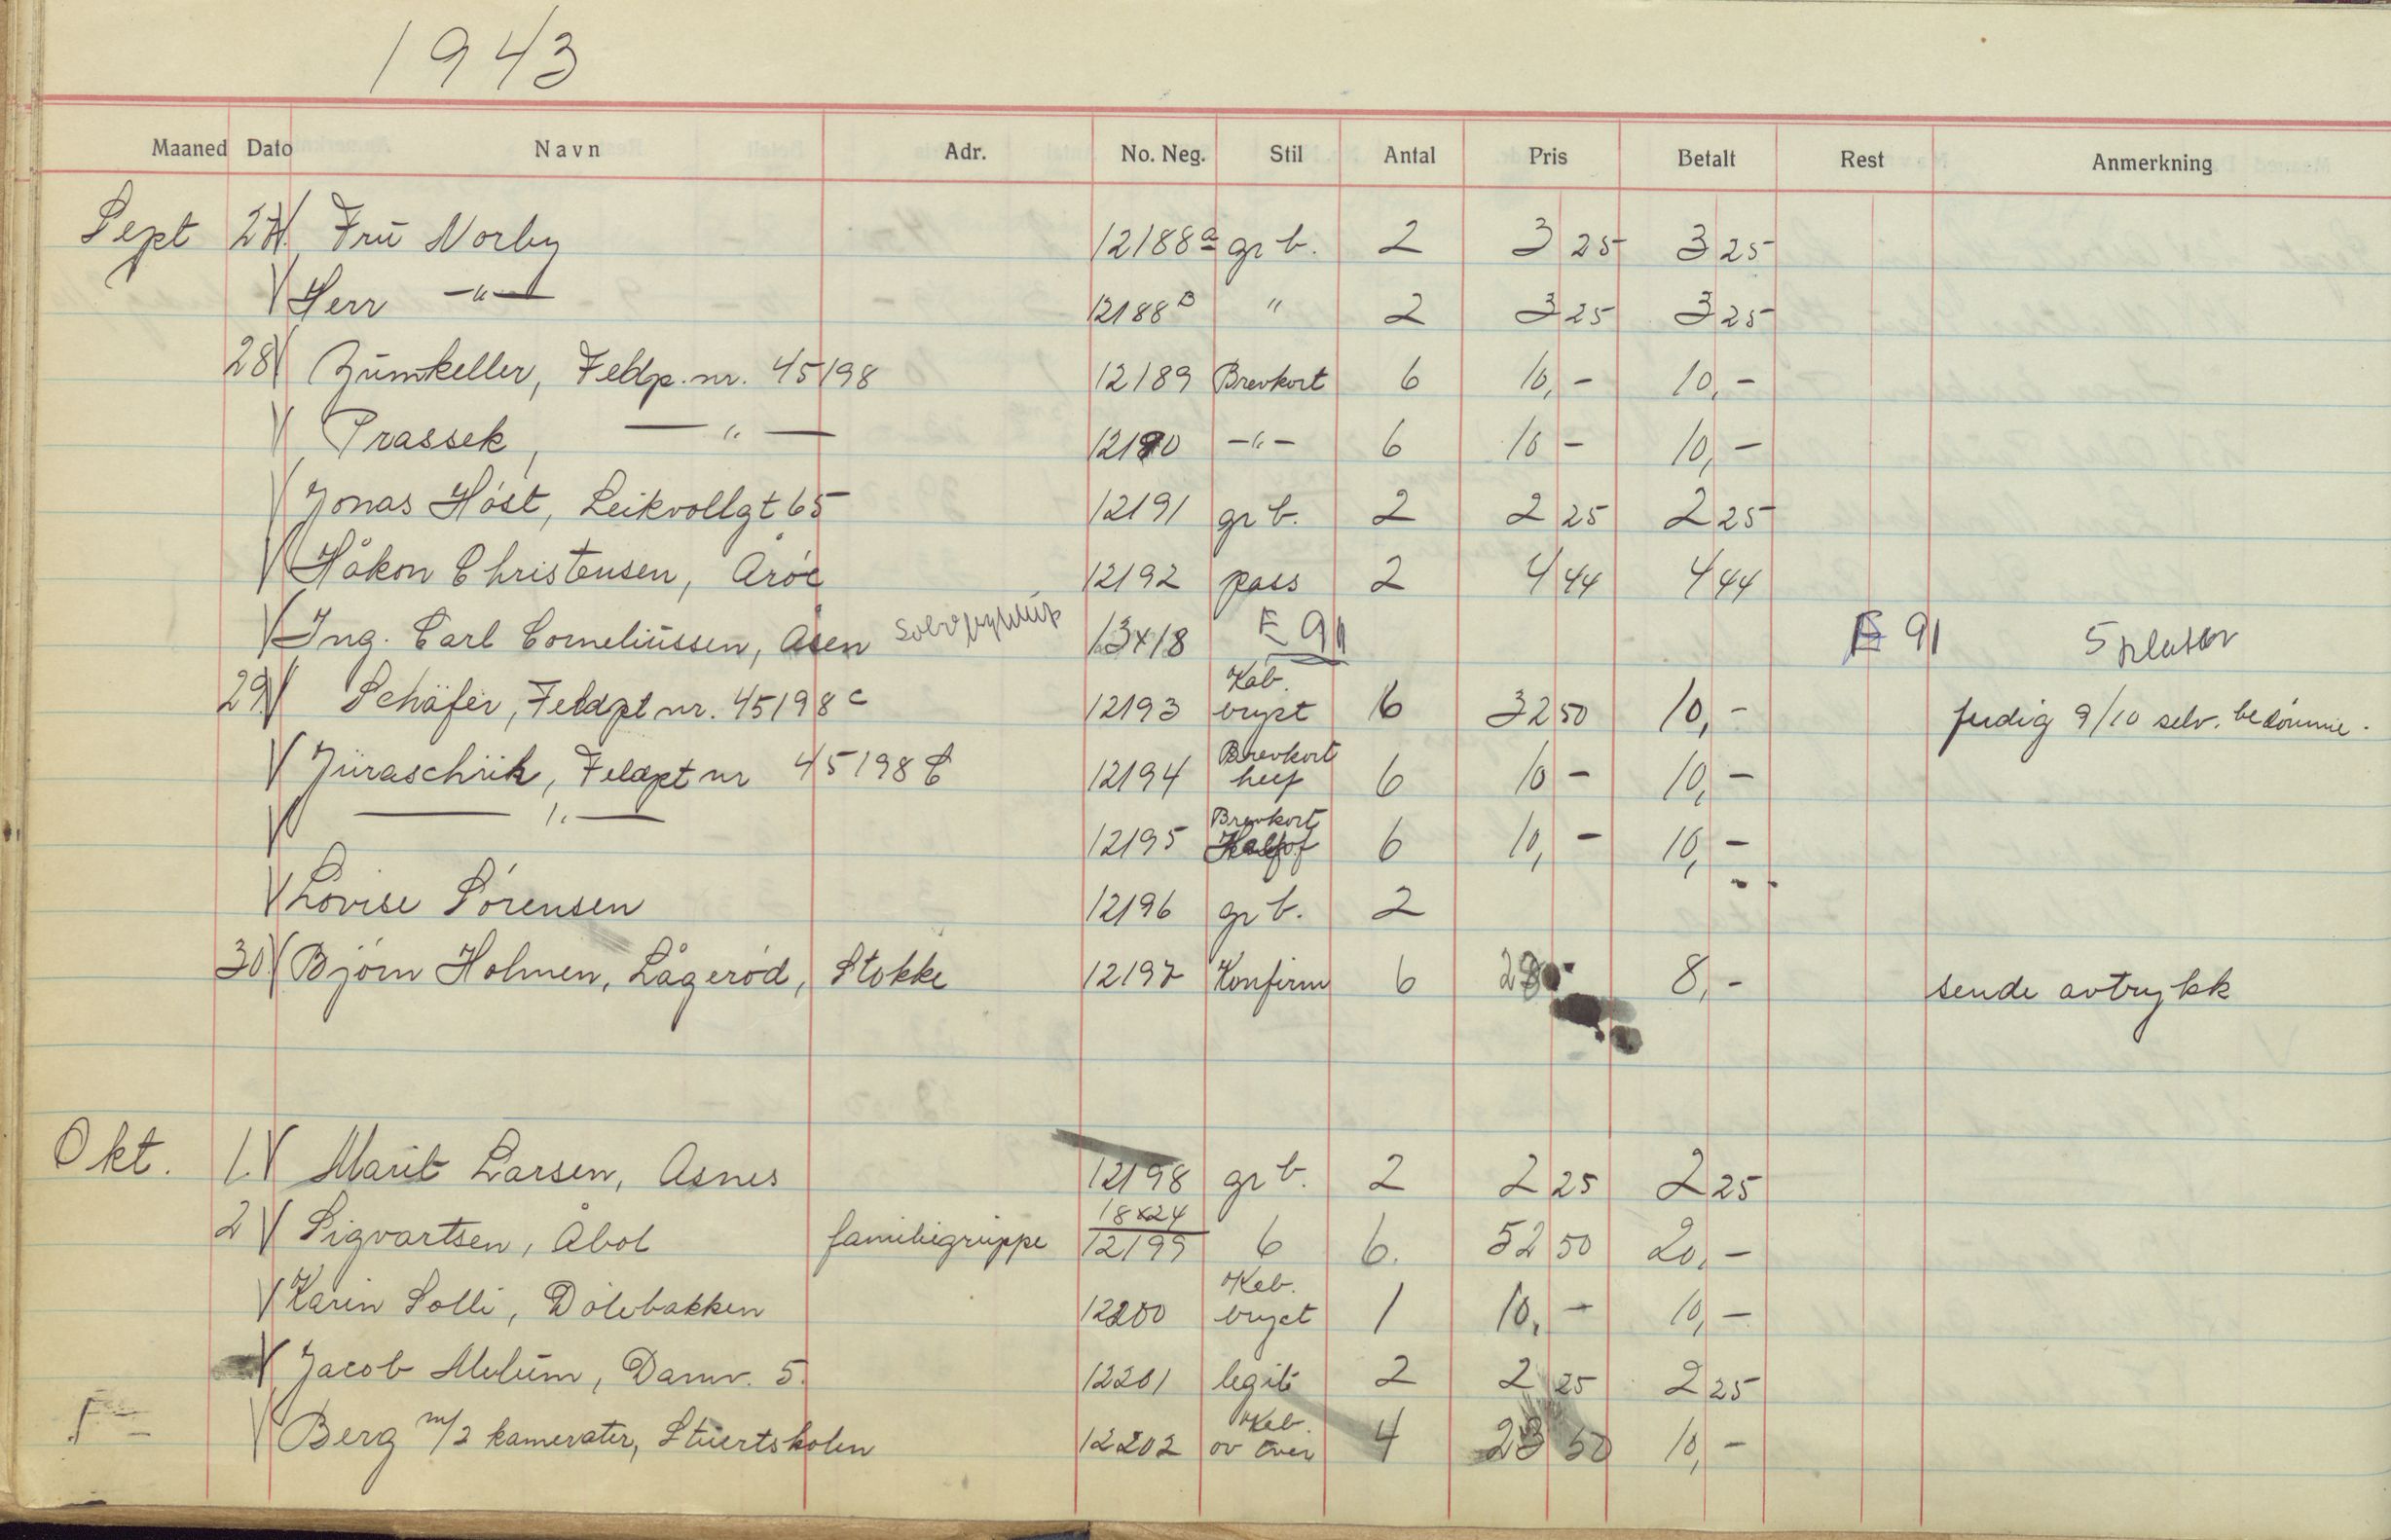 1943
Maaned Dato Navn Adr. No. Neg. Stil Antal Pris Betalt Rest Anmerkning
Sept 27. Frū Norby 12188a gr b. 2 3 25 3 25
Herr —"— 12188B " 2 3 25 3 25
28 Zūmkeller, Feldp. nr. 45198 12189 Brevkort 6 10,- 10,-
Prassek, —"— 12190 -"- 6 10 - 10,-
Jonas Höst, Leikvollgt 65 12191 gr b. 2 2 25 2 25
Håkon Christensen, Aröe 12192 pass 2 4 44 4 44
Ing. Carl Corneliūssen, Åsen 13x18 F 91 91 5 plater
29 Schäfer, Feldpt nr. 45198 c 12193 Kab. bryst 6 32 50 10,- ferdig 9/10 selv. bedömme.
Jūraschūk, Feldpt nr 45198 C 12194 Brevkort helf 6 10 - 10,-
—"— 12195 Brevkort 6 10,- 10,-
Lovise Sörensen 12196 gr b. 2
30. Björn Holmen, Lågeröd, Stokke 12197 Konfirm 6 8,- sende avtrykk
Okt. 1. Marit Larsen, Åsnes 12198 gr b. 2 2 25 2 25
2 Sigvartsen, Åbol familiegrūppe 18x24 12199 6 6. 52 50 20,-
Karin Solli, Dölebakken 12200 Kab. bryst 1 10,- 10,-
Jacob Melūm, Damv. 5. 12201 legit 2 2 25 2 25
Berg m/2 kamerater, Stūertskolen 12202 Kab. ov tver 4 23 50 10,-